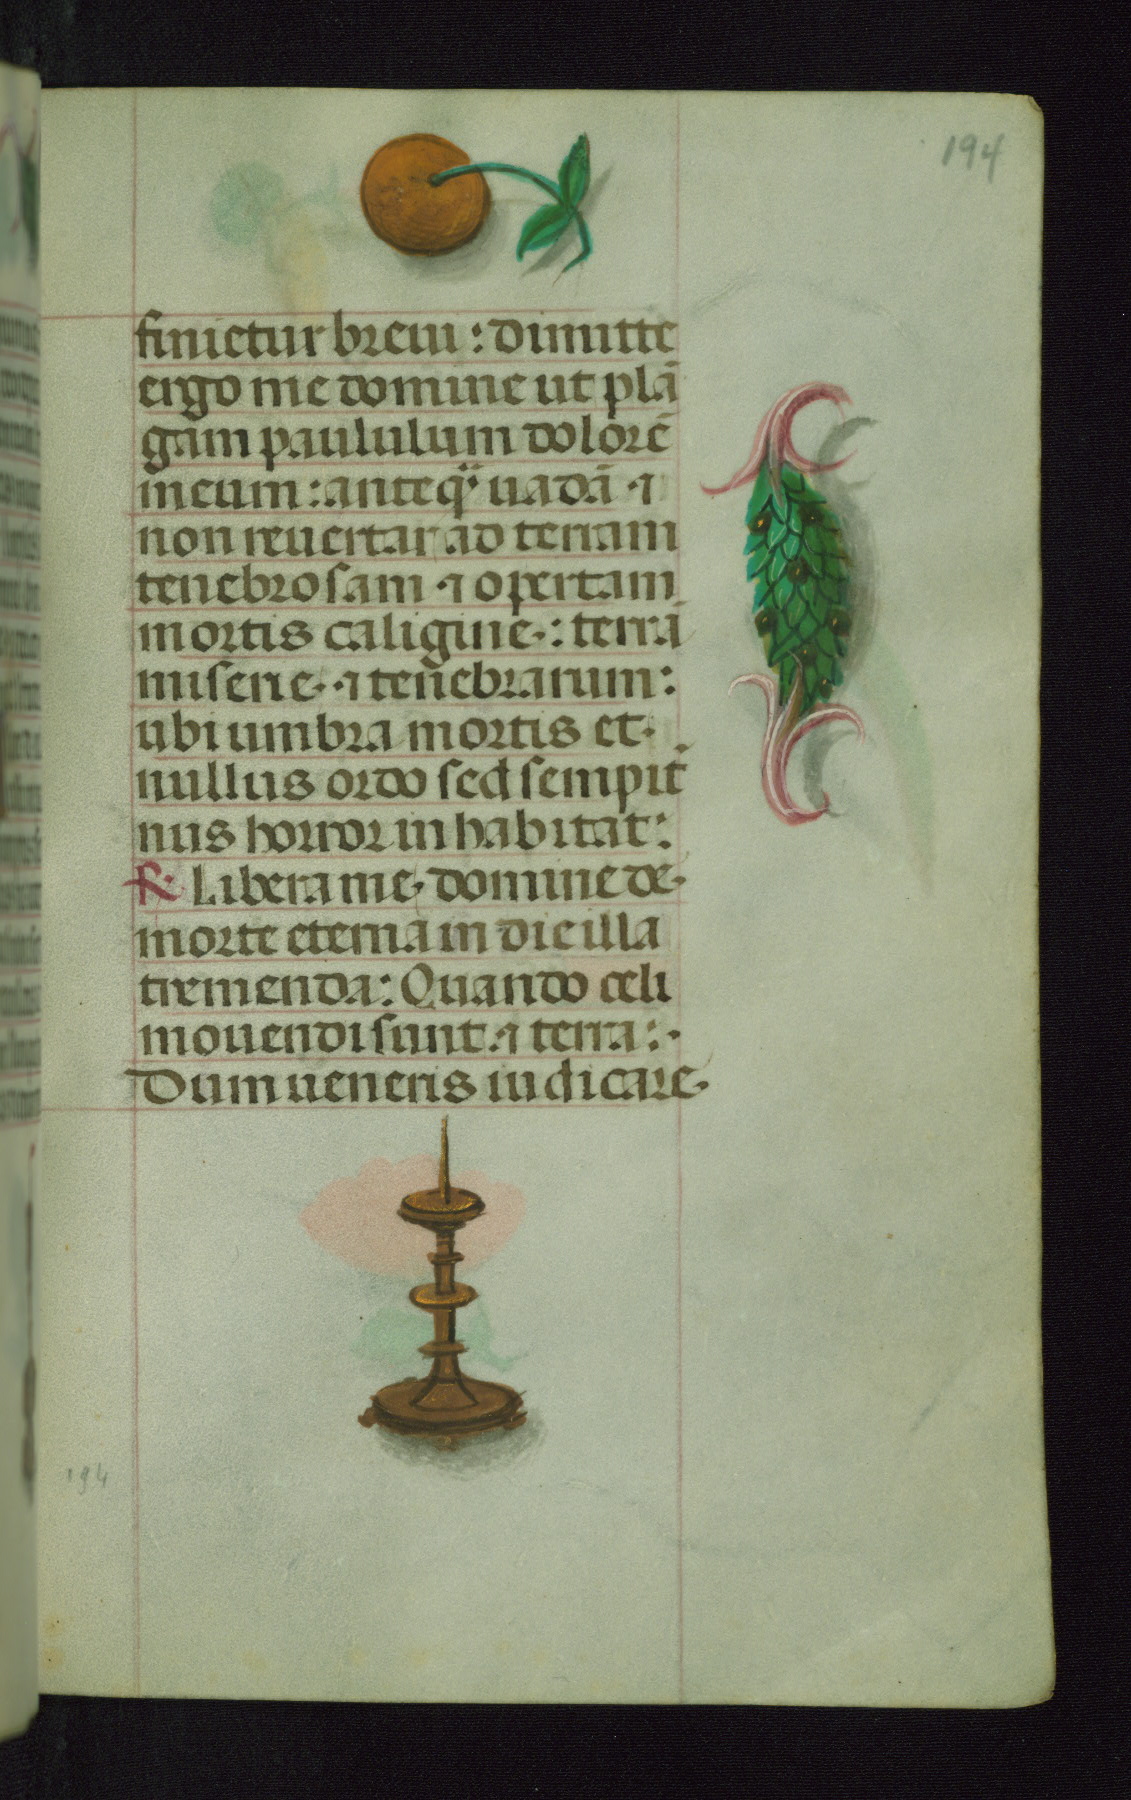 194
finietur breui : dimitte
ergo me domine ut plā
gam paululum dolorē
meum : anteq̄ uadā ⁊
non reuertar ad terram
tenebrosam ⁊ opertam
mortis caligine : terrā
miserie ⁊ tenebrarum :
ubi umbra mortis et
nullus ordo sed sempit̄
nus horror inhabitat :
℟. Libera me domine de
morte eterna in die illa
tremenda : Quando celi
mouendi sunt ⁊ terra :
Dum ueneris iudicare
194